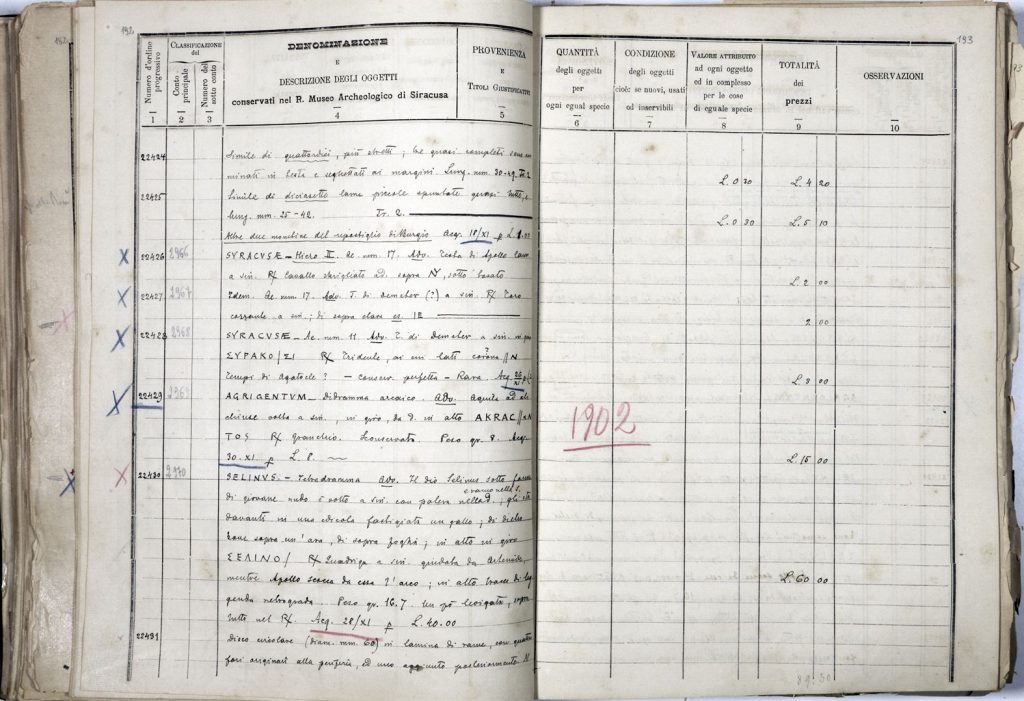 192
193
Numero d'ordine progressivo
CLASSIFICAZIONE del
Conto principale
Numero del sotto conto
DENOMINAZIONE
E
DESCRIZIONE DEGLI OGGETTI
conservati nel R. Museo Archeologico di Siracusa
PROVENIENZA
E
TITOLI GIUSTIFICATIVI
QUANTITÀ
degli oggetti
per
ogni egual specie
CONDIZIONE
degli oggetti
cioè: se nuovi, usati
od inservibili
VALORE ATTRIBUITO
ad ogni oggetto
ed in complesso
per le cose
di eguale specie
TOTALITÀ
dei
prezzi
OSSERVAZIONI
1 2 3 4 5 6 7 8 9 10
22424 Simile di quattordici, più stretti; tre quasi completi sono
minati in testa e seghettati ai margini. Lung. mm. 30-49. Tr. 2 L. 0 30 L. 4 20
22425 Simile di diciasette lame piccole spuntate quasi tutte,
lung. mm. 25-42. Tr. 2. L. 0 30 L. 5 10
Altre due monetine del ripostiglio di Acq. 18/XI p L.
22426 2966 SYRACUSÆ - Hiero II. Ae. mm. 17. Adv. Testa di Apollo
a sin. R/ Cavallo sbrigliato ad. sopra N, sotto L. 2 00
22427 2967 Idem. Ae. mm. 17. Adv. T. di Demeter (?) a sin. R/ Toro
a sin; di sopra clava es. IE 2 00
22428 2968 SYRACUSÆ - Ae. mm. 11. Adv. T. di Demeter a sin. in giro
ΣΥΡΑΚΟ/ΣΙ R/ Tridente, ai cui lati corona // N
Tempi di Agatocle? - conserv. perfetta - Rara. Acq. 26/XI L. 8 00
22429 2969 AGRIGENTVM - Didramma arcaico. Adv. Aquila ad ali
chiuse volta a sin, in giro, da d. in alto AKRAC//
TOS R/ Granchio. Sconservato. Peso gr. 8. Acq.
30.XI p L. 8. L. 15 00
22430 2970 SELINVS. - Tetradramma Adv. Il dio Selinus sotto forma
e ramo nella s.
di giovane nudo è volto a sin. con patera nella d;
davanti in una edicola fastigiata un gallo; di dietro
sopra un'ara, di sopra foglia; in alto in giro
ΣΕΛΙΝΟ/ R/ Quadriga a sin. guidata da Artemide,
mentre Apollo scocca da essa l'arco; in alto tracce di leg
genda retrograda. Peso gr. 16.7. Un pò levigata, sopra L. 60 00
tutto nel R/. Acq. 28/XI p L. 40.00
22431 Disco circolare (diam. mm. 60) in lamina di rame, con quattro
fori originari alla periferia, ed uno aggiunto posteriormente
1902
89.30